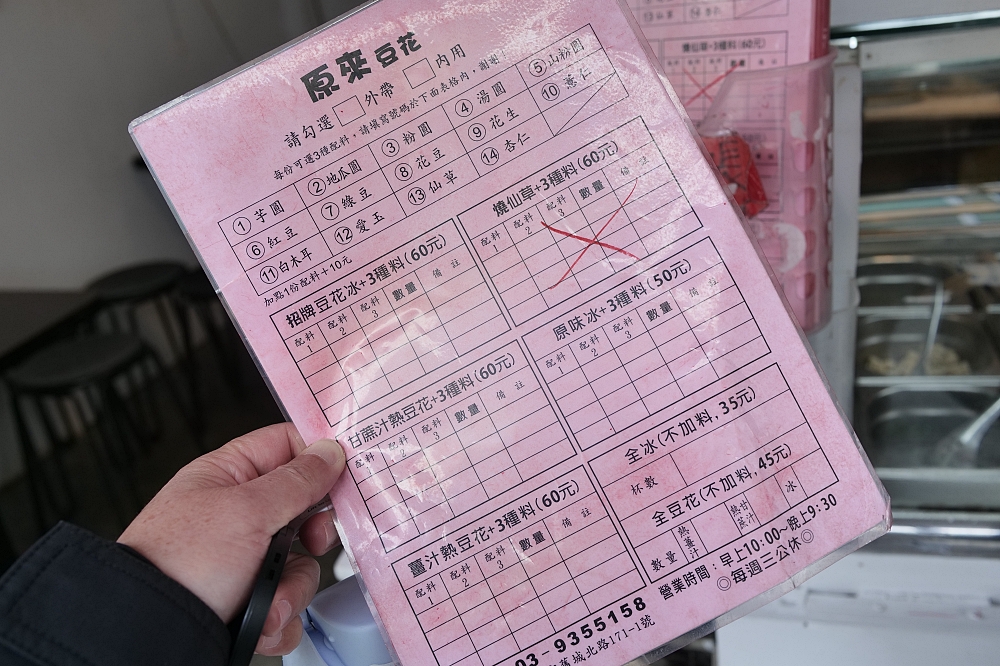 原來豆花
請勾選 □外帶 □內用
每份可選3種配料，請填寫號碼於下面表格內，謝謝！
①芋圓 ②地瓜圓 ③粉圓 ④湯圓 ⑤山粉圓
⑥紅豆 ⑦綠豆 ⑧花豆 ⑨花生 ⑩薏仁
⑪白木耳 ⑫愛玉 ⑬仙草 ⑭杏仁
加點1份配料+10元
招牌豆花冰+3種料(60元)
配料1 配料2 配料3 數量 備註
燒仙草+3種料(60元)
配料1 配料2 配料3 數量 備註
甘蔗汁熱豆花+3種料(60元)
配料1 配料2 配料3 數量 備註
原味冰+3種料(50元)
配料1 配料2 配料3 數量 備註
薑汁熱豆花+3種料(60元)
配料1 配料2 配料3 數量 備註
全冰(不加料,35元)
杯數
全豆花(不加料,45元)
數量 熱薑汁 熱甘蔗汁 冰
營業時間：早上10:00~晚上9:30
◎每週二公休◎
03-9355158
舊城北路171-1號
燒仙草+3種料(60元)